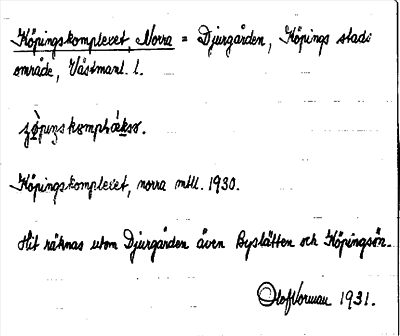 Köpingskomplexet, Norra = Djurgården, Köpings stads
område, Västmanl. l.
Köpingskomplexet, norra mtll. 1930.
Hit räknas utom Djurgården även Byslätten och Köpingsön.
Olof Norman 1931.